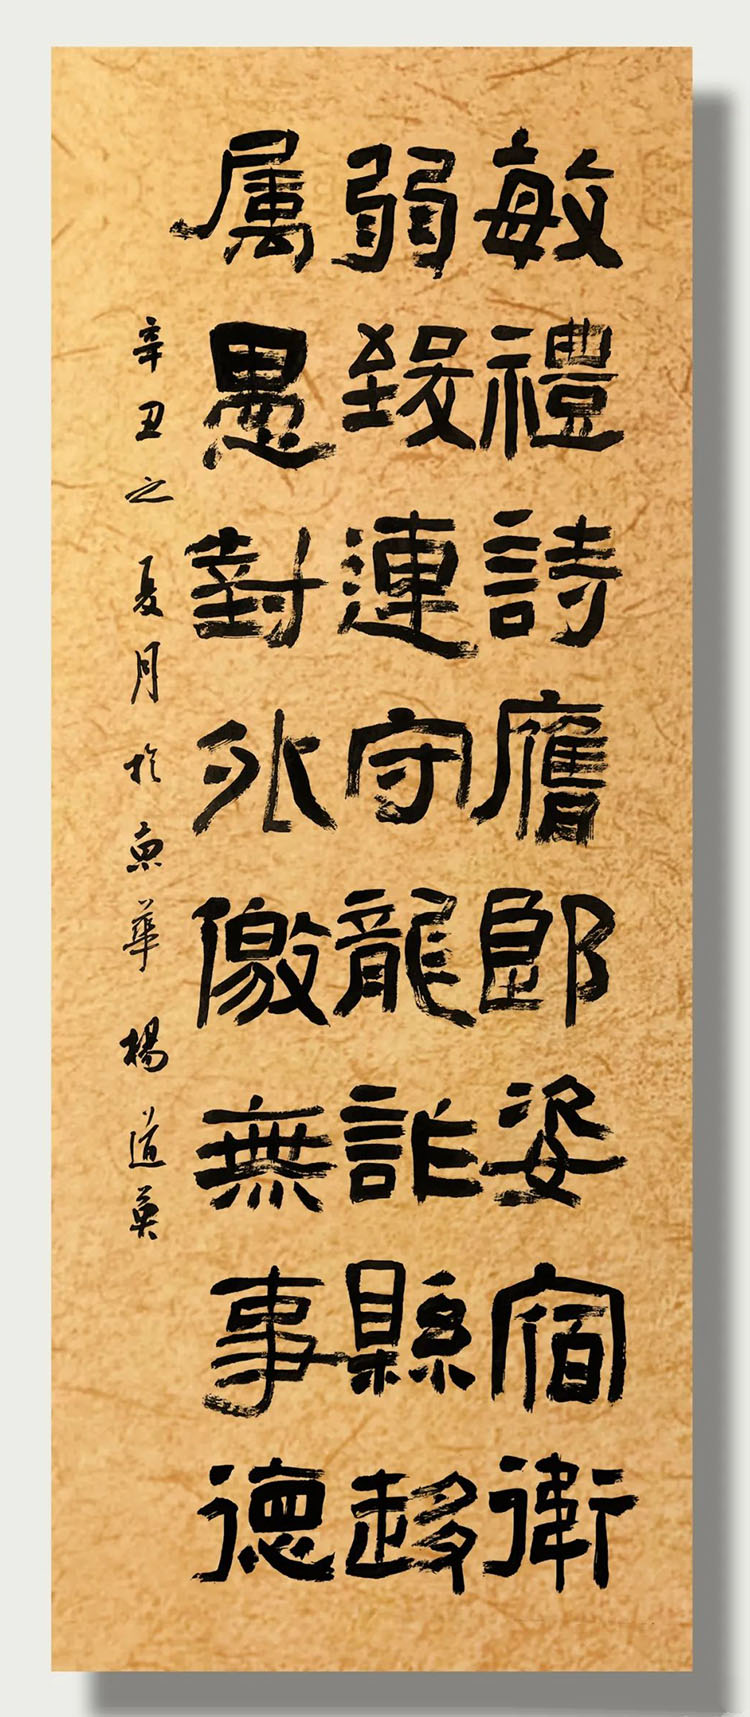 敏禮詩膺郎姿宿衛
弱致連守龍詐縣趍
属愚對外儌無事德
辛丑之夏月於京華楊道英